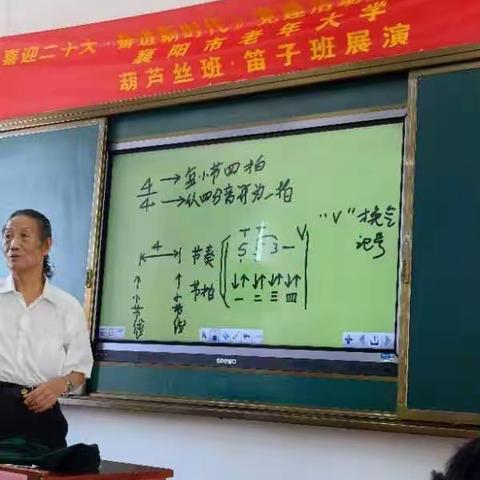 喜迎二十大 奋进新时代
襄阳市老年大学
葫芦丝班 笛子班展演
4 → 每小节四拍
4 → 以四分音符为一拍
"V" 换气
记号
4
节奏
5 5 3 — V
节拍
↓↑ ↓↑ ↓↑ ↓↑
一 二 三 四
小节线
小节线
seewo